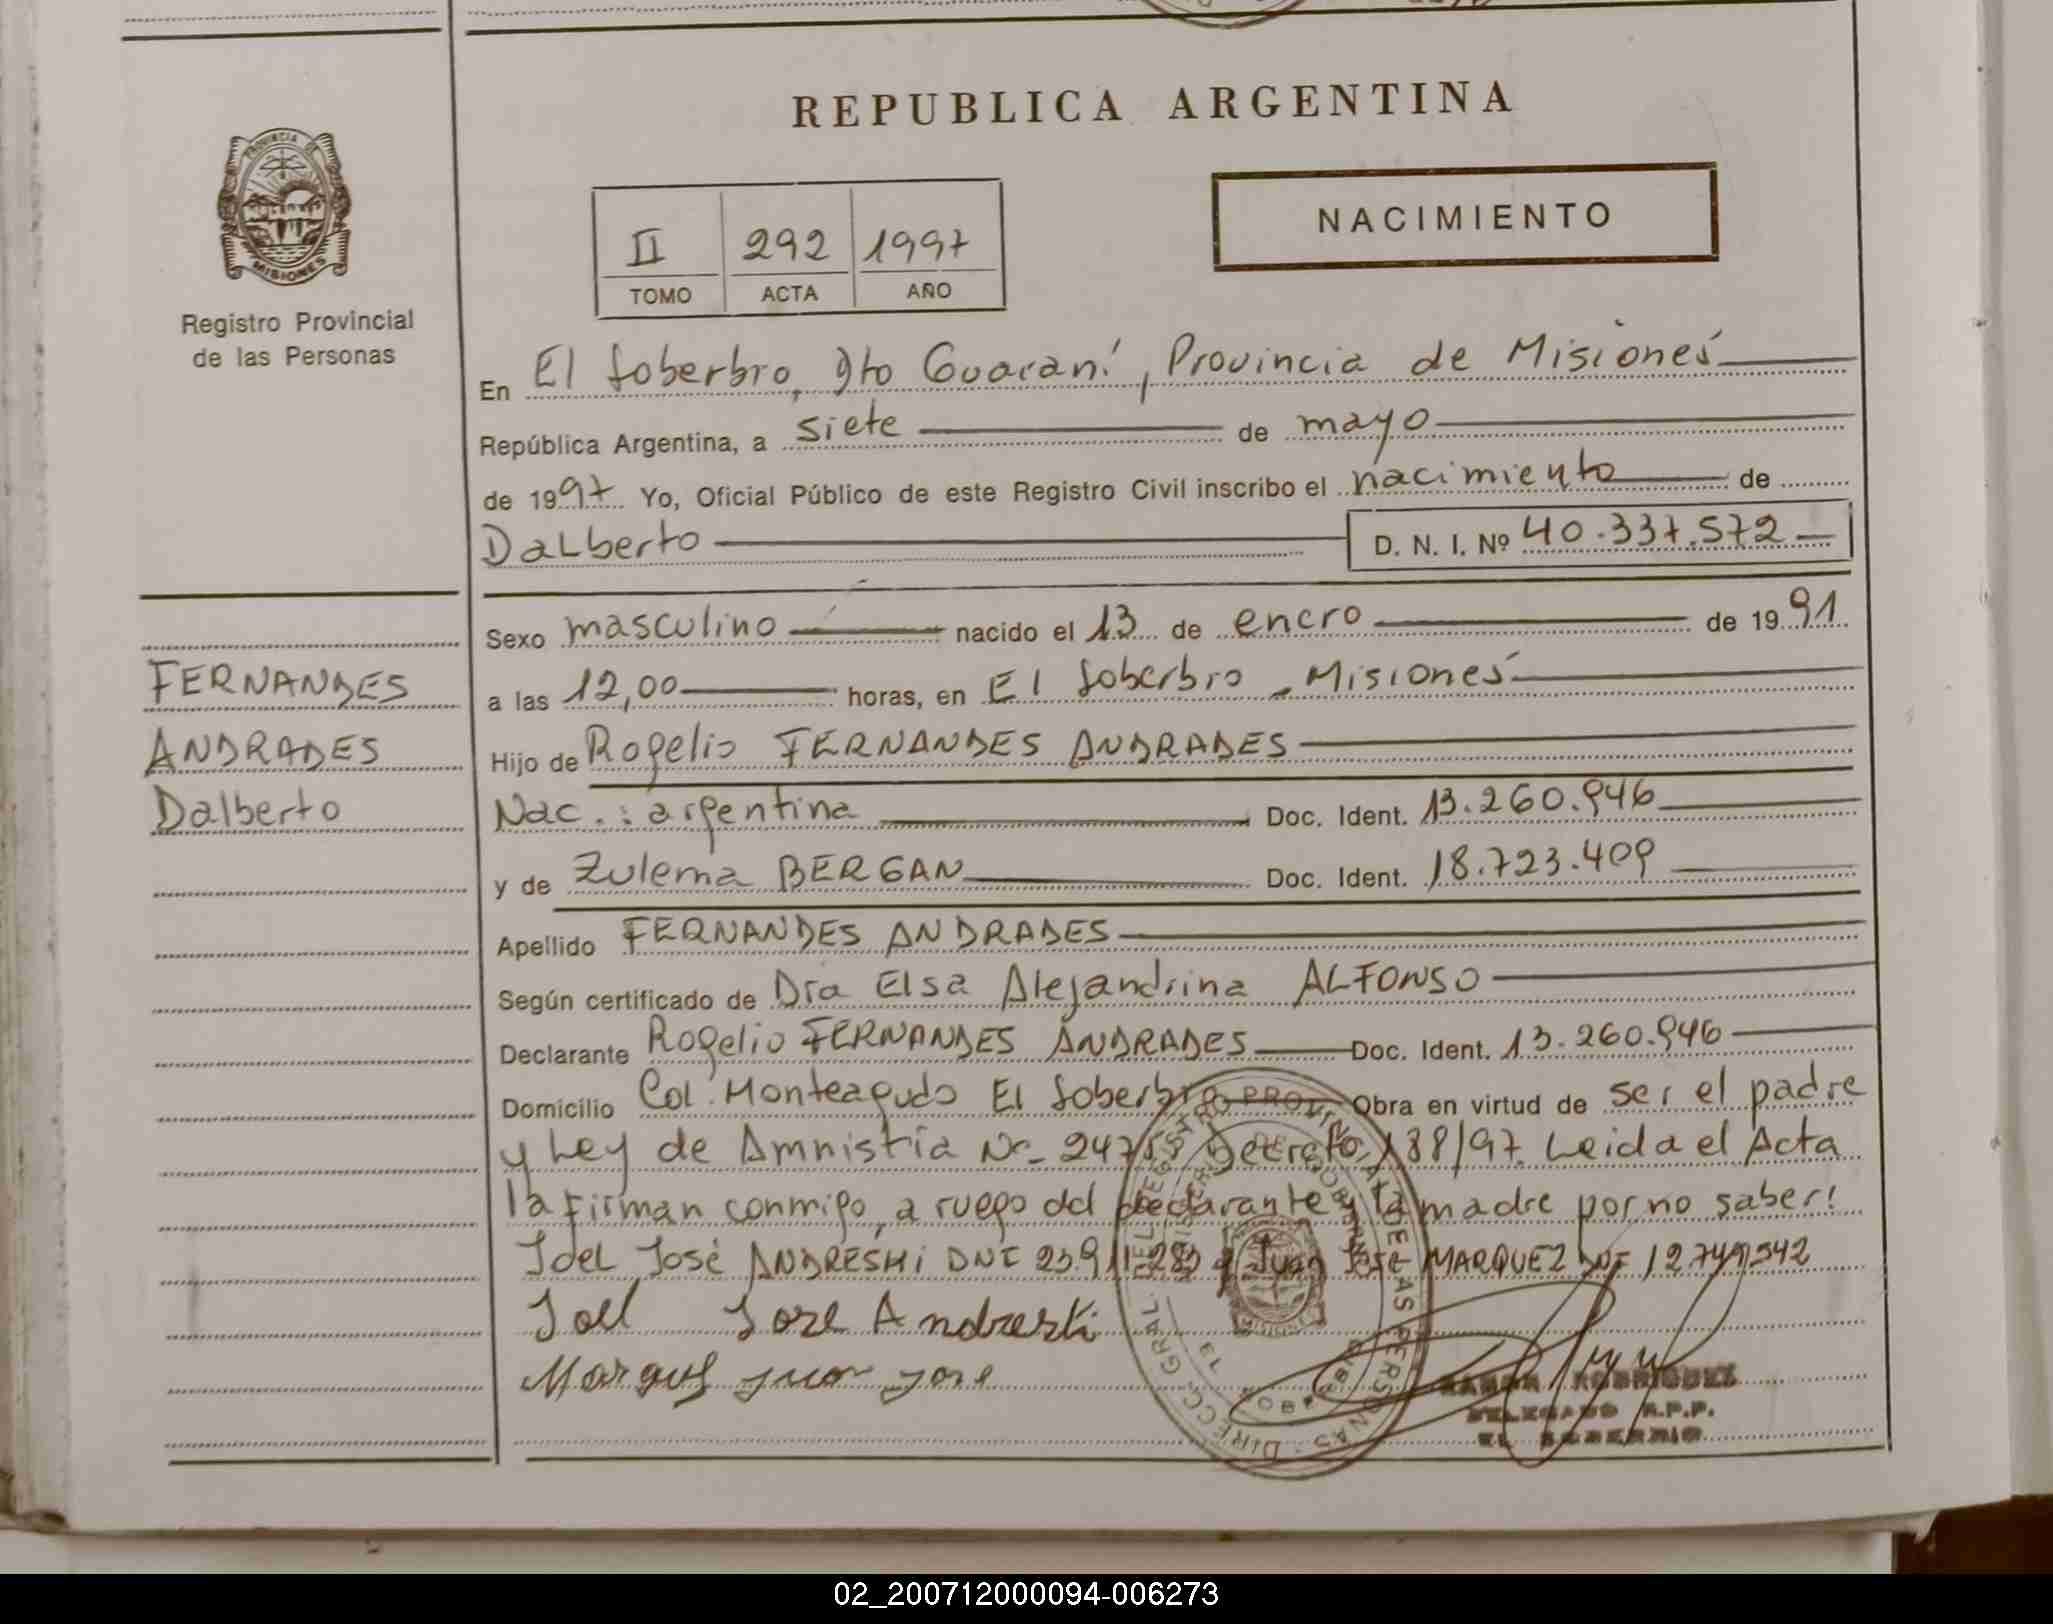 REPUBLICA ARGENTINA
PROVINCIA DE
MISIONES
Registro Provincial
de las Personas
NACIMIENTO
II 292 1997
TOMO ACTA AÑO
En El Soberbio, Dto Guaraní, Provincia de Misiones
República Argentina, a siete de mayo
de 1997 Yo, Oficial Público de este Registro Civil inscribo el nacimiento de
Dalberto D. N. I. Nº 40.337.572
Sexo masculino nacido el 13 de enero de 1991
FERNANDES
a las 12,00 horas, en El Soberbio - Misiones
ANDRADES
Hijo de Rogelio FERNANDES ANDRADES
Dalberto
Nac.: argentina Doc. Ident. 13.260.946
y de Zulema BERGAN Doc. Ident. 18.723.409
Apellido FERNANDES ANDRADES
Según certificado de Dra Elsa Alejandrina ALFONSO
Declarante Rogelio FERNANDES ANDRADES Doc. Ident. 13.260.946
Domicilio Col. Monteagudo El Soberbio Obra en virtud de ser el padre
y Ley de Amnistía Decreto 138/97 Leida el Acta
la firman conmigo, a ruego del declarante y la madre por no saber:
Joel José ANDRESKI DNI y Juan José MARQUEZ DNI
Joel Jose Andreski
Marques juan jose
RAMON RODRIGUEZ
DELEGADO R.P.P.
EL SOBERBIO
02_200712000094-006273